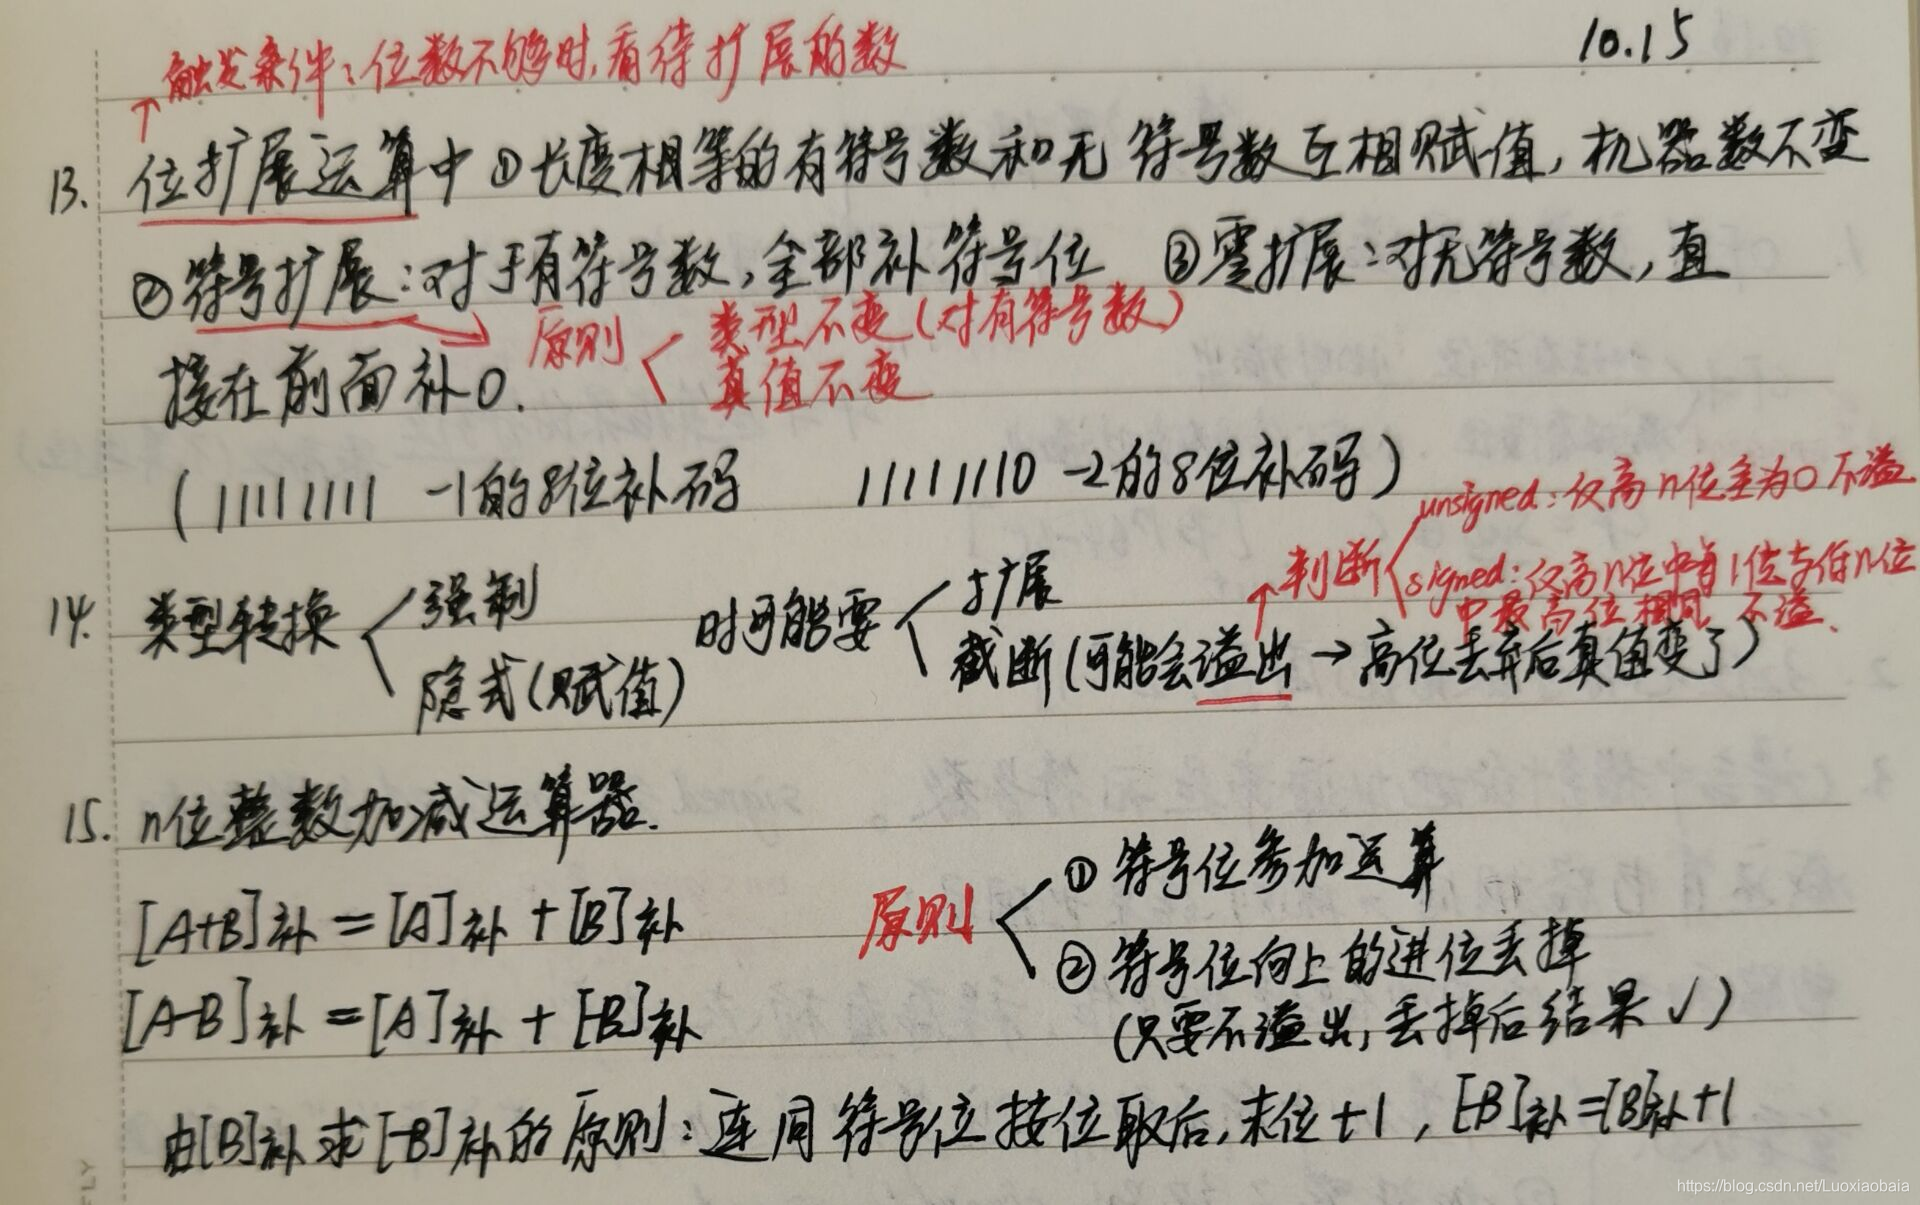 10.15
触发条件：位数不够时，看待扩展的数
13. 位扩展运算中 ①长度相等的有符号数和无符号数互相赋值，机器数不变
②符号扩展：对于有符号数，全部补符号位 ③零扩展：对无符号数，直
接在前面补0.
原则 类型不变（对有符号数）
真值不变
（11111111 -1的8位补码 11111110 -2的8位补码）
unsigned：仅高n位全为0 不溢
判断 signed：仅高n位中每1位与低n位
中最高位相同 不溢.
14. 类型转换 强制 时可能要 扩展
隐式（赋值） 截断（可能会溢出→高位丢弃后真值变了）
15. n位整数加减运算器.
原则 ①符号位参加运算
[A+B]补=[A]补+[B]补
②符号位向上的进位丢掉
[A-B]补=[A]补+[-B]补
（只要不溢出，丢掉后结果√）
由[B]补求[-B]补的原则：连同符号位按位取后，末位+1，[-B]补=[B]补+1
https://blog.csdn.net/Luoxiaobaia